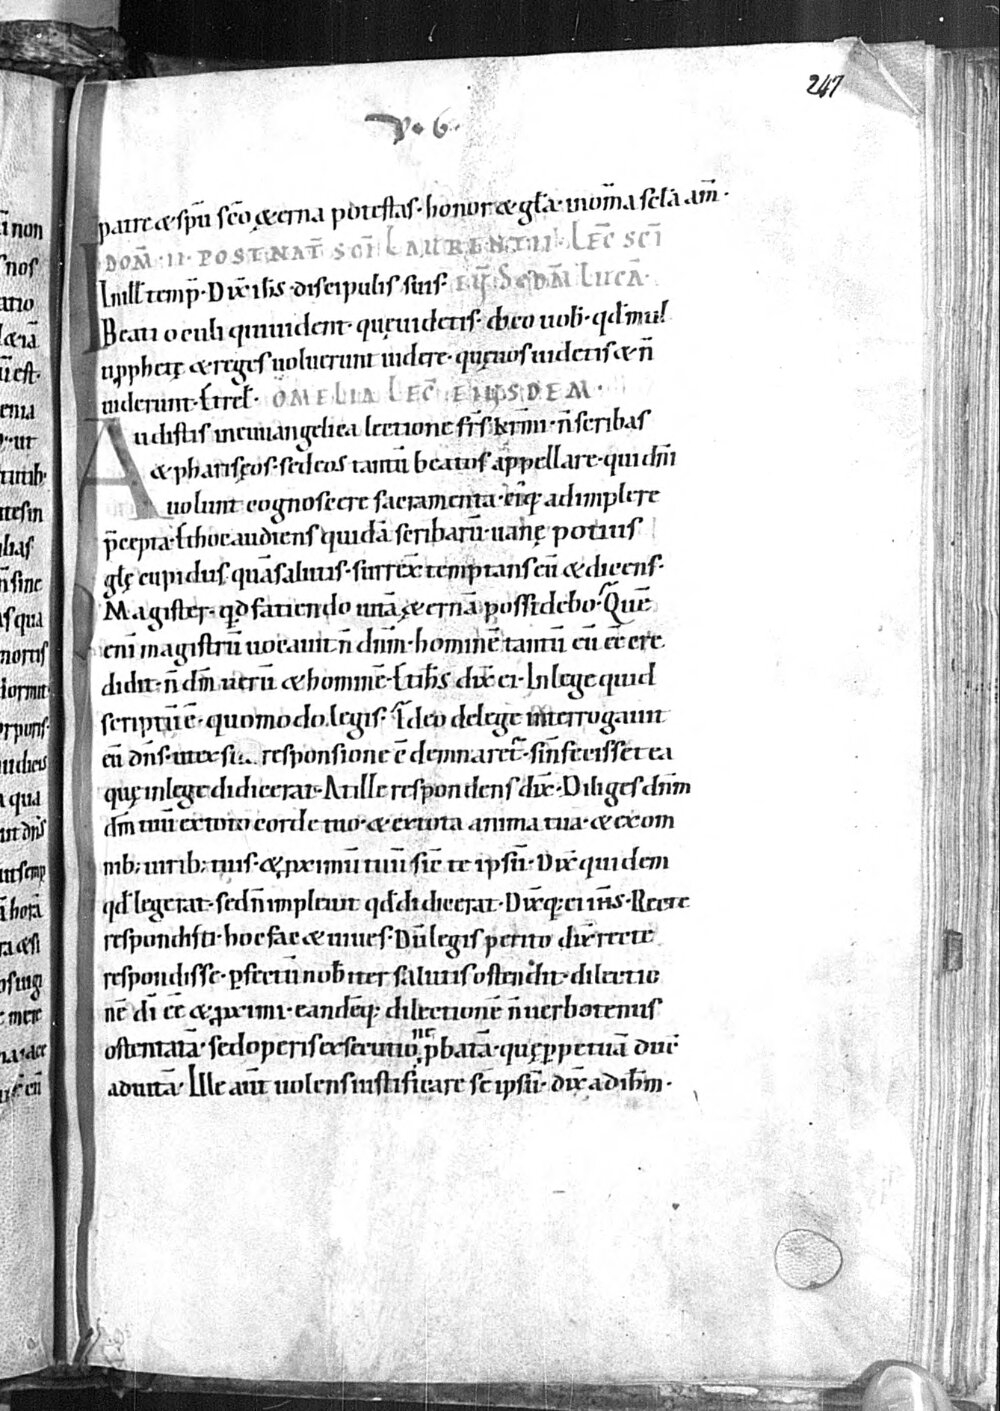 247
V. 6.
patre & spū sc̄o æt̨erna potestas· honor & gl̄a· in om̄a scl̄a am̄·
DOM̄· II· POST NAT̄ SCĪ LAURENTII· LEC̄ SCĪ
In ill̄ temp̄· Dix̄ ih̄s discipulis suis· EŪ· SED̄M LUCĀ·
Beati oculi qui uident· quę uidetis· dico uob̄· qd̄ mul
ti pphetę & reges uoluerunt uidere· quę uos uidetis & n̄
uiderunt· Et rel̄· OMELIA LEC̄ EIUSDEM·
Audistis in euuangelica lectione fr̄s kr̄mi· n̄ scribas
& phariseos· sed eos tantū beatos appellare· qui dn̄i
uolunt cognoscere sacramenta· eiq̄ adimplere
p̄cepta· Et hoc audiens quidā scribarū· uanę potius
gl̄ę cupidus quā salutis· surrex̄ temptans eū & dicens·
Magister· qd̄ faciendo uitā æt̨ernā possidebo· Quē
enī magistrū uocauit n̄ dn̄m· hominē tantū eū ee̅ cre
didit· n̄ dm̄ uerū & hominē· Et ih̄s dix̄ ei· In lege quid
scriptū ē· quomodo legis· Ideo de lege interrogauit
eū dn̄s· ut ex sua responsione cdemnaret̄· si n̄ fecisset ea
quę in lege didicerat· At ille respondens dix̄· Diliges dn̄m
dm̄ tuū ex toto corde tuo· & ex tota anima tua· & ex om
nib; uirib; tuis· & p̱ximū tuū sic̄ te ipsū· Dix̄ quidem
qd̄ legerat· sed n̄ impleuit qd̄ didicerat· Dix̄q; ei ih̄s· Recte
respondisti· hoc fac & uiues· Dū legis perito dic̄ recte
respondisse· p̱fectū nob̄ iter salutis ostendit· dilectio
nē dī ee̅ & p̱ximi· eandēq; dilectionē n̄ uerbotenus
ostentatā· sed operis exsecutione p̱batā· quę p̱petuā duc̄
ad uitā· Ille aūt uolens iustificare se ipsū· dix̄ ad ih̄m·